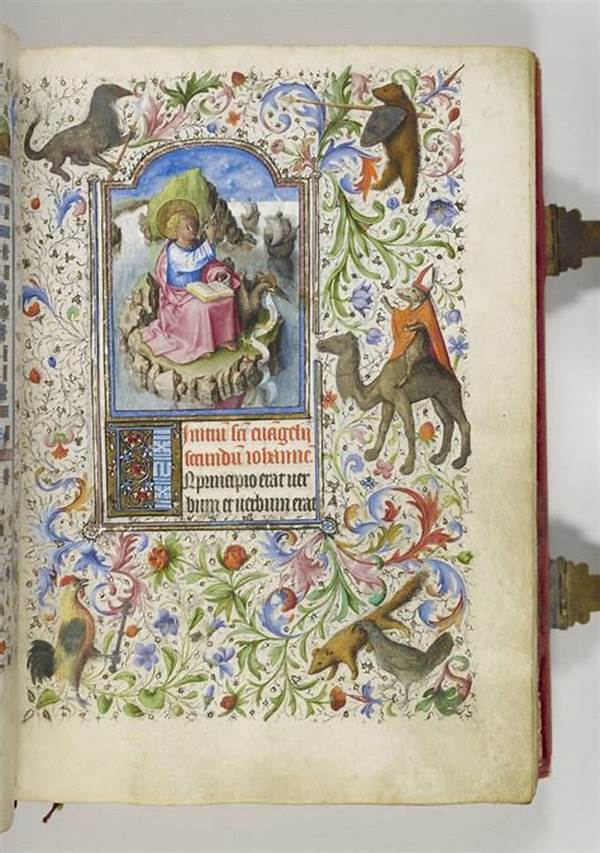 Initiū sc̄i euāgelij
secundū iohanne͞.
IN principio erat uer
bum et uerbum erat